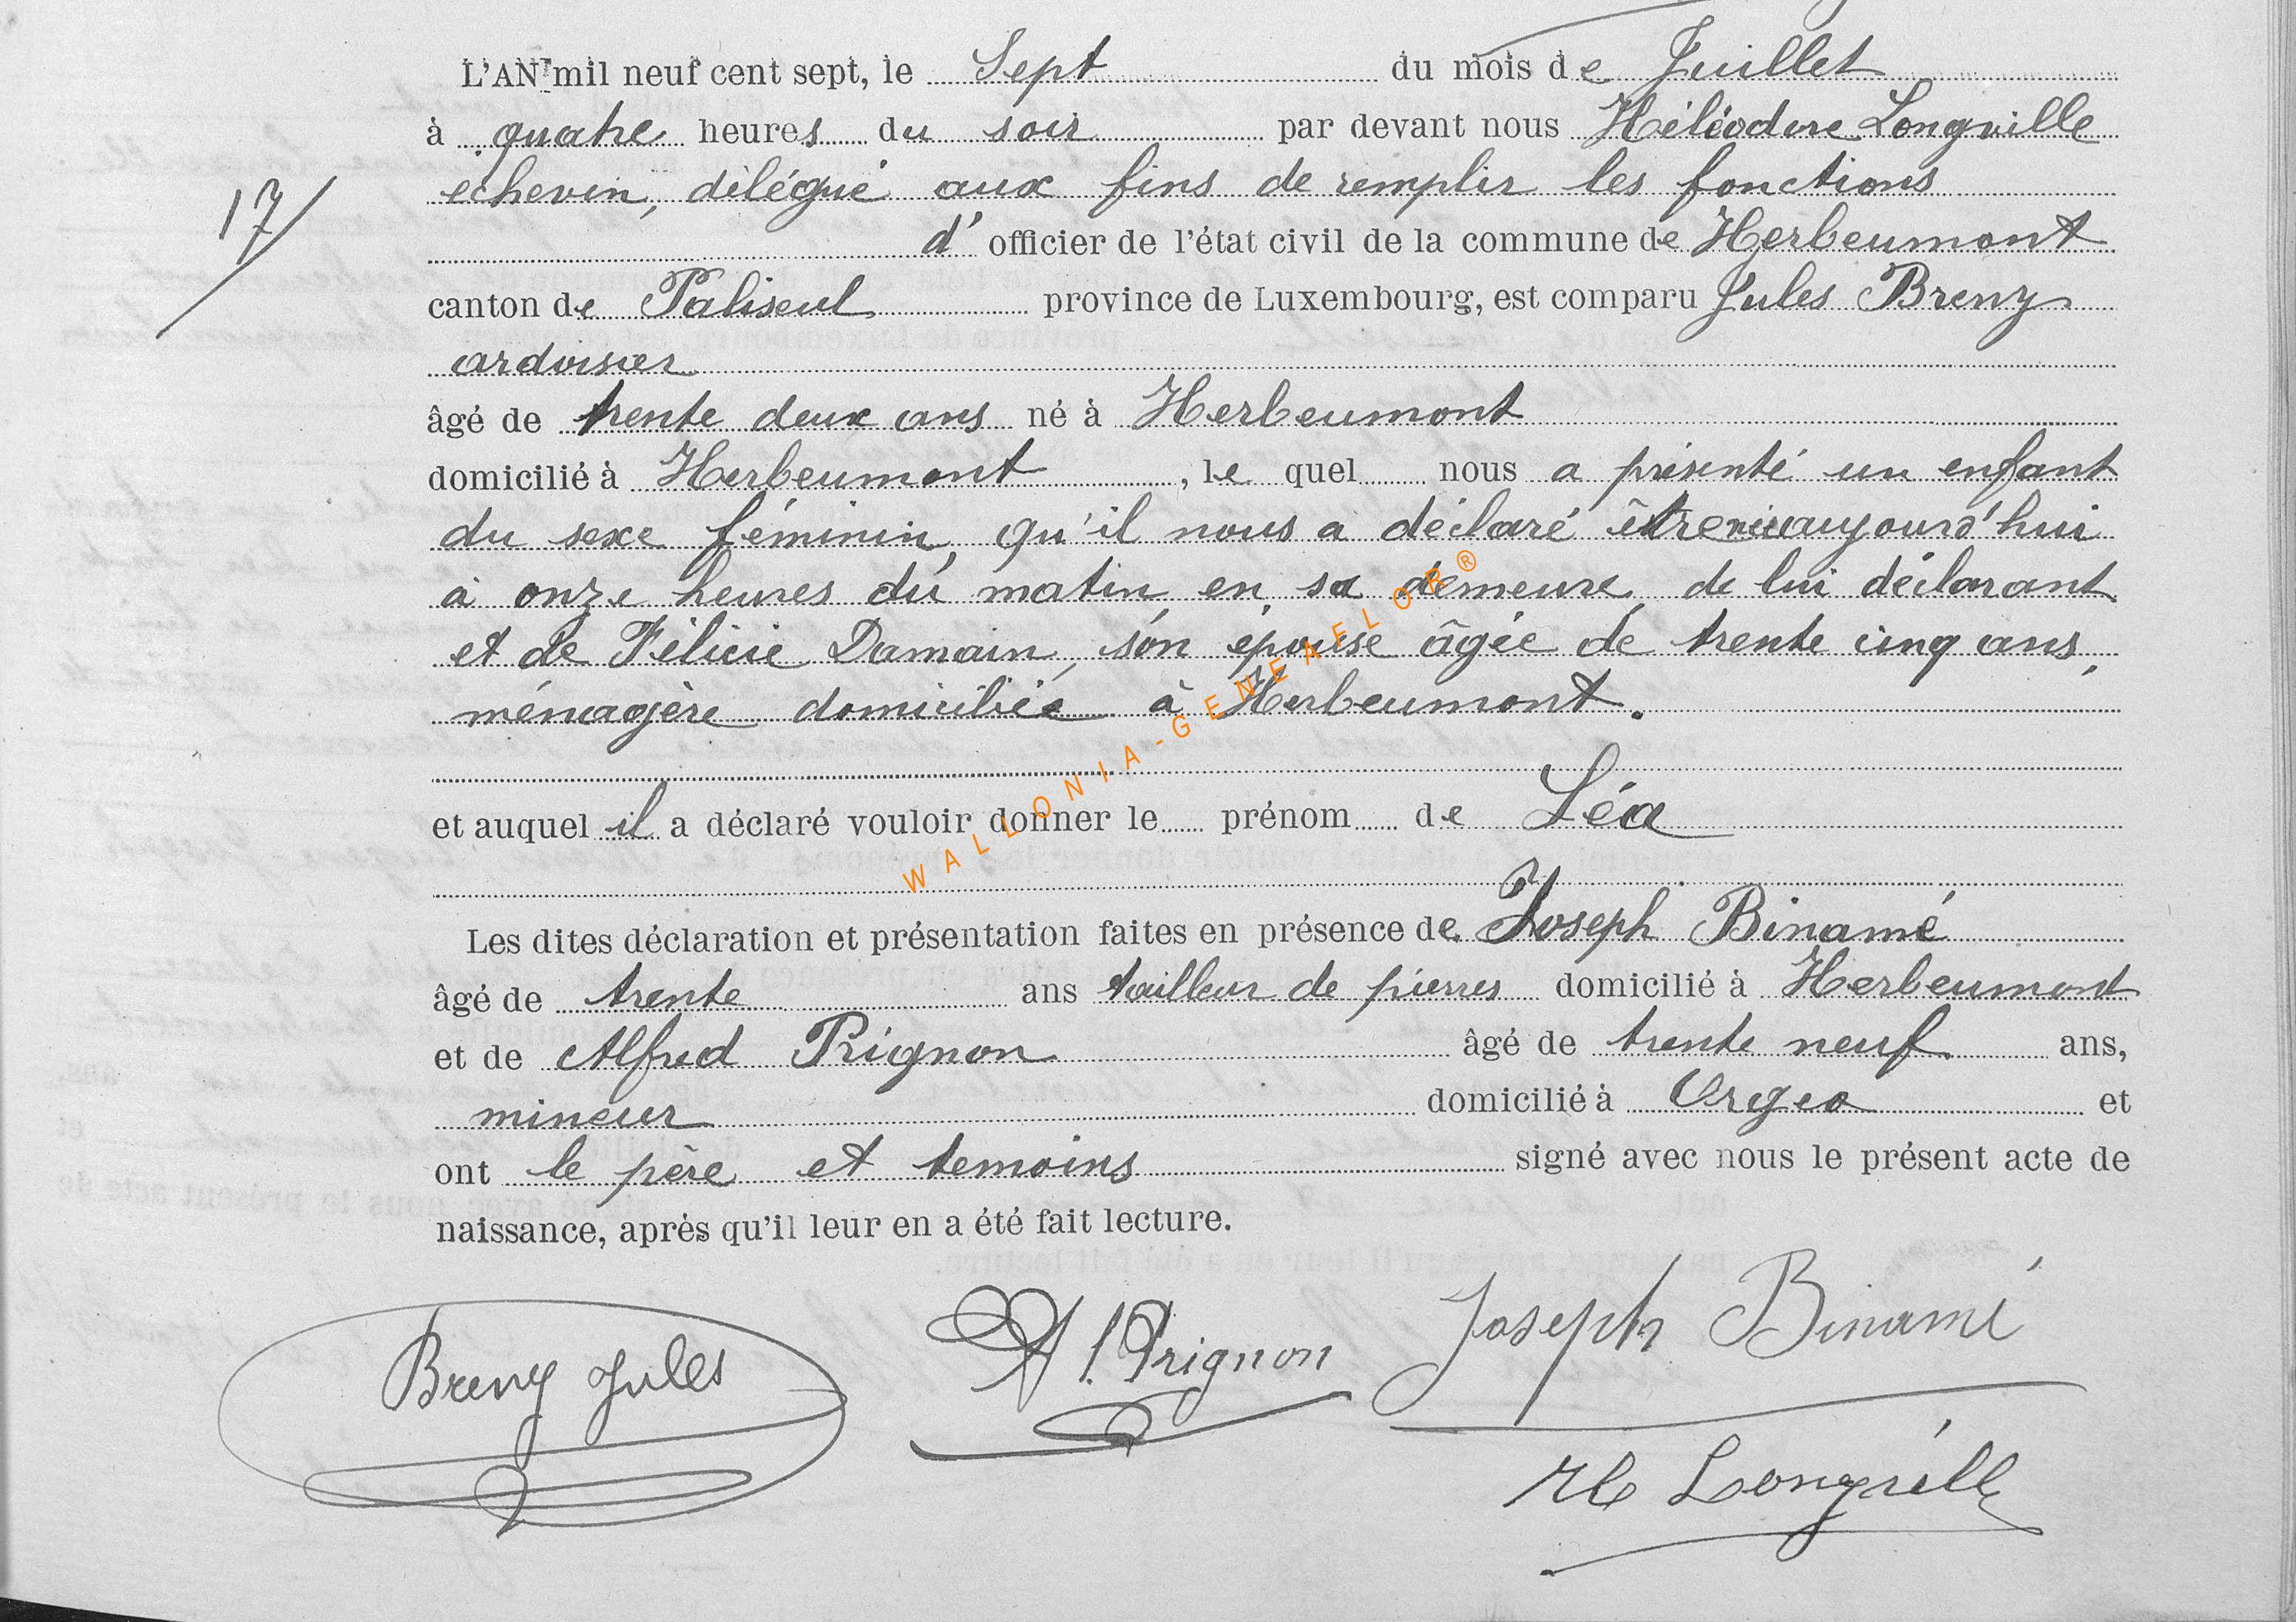 L'AN mil neuf cent sept, le Sept du mois de Juillet
à quatre heures du soir par devant nous Héliodore Longville
17/
echevin, délégué aux fins de remplir les fonctions
d' officier de l'état civil de la commune de Herbeumont
canton de Paliseul province de Luxembourg, est comparu Jules Breny
ardoisier
âgé de trente deux ans né à Herbeumont
domicilié à Herbeumont, le quel nous a présenté un enfant
du sexe féminin, qu'il nous a déclaré être né aujourd'hui
à onze heures du matin, en sa demeure, de lui déclarant
et de Félicie Damain, son épouse âgée de trente cinq ans,
ménagère domiciliée à Herbeumont.
et auquel il a déclaré vouloir donner le prénom de Léa
Les dites déclaration et présentation faites en présence de Joseph Binamé
âgé de trente ans tailleur de pierres domicilié à Herbeumont
et de Alfred Prignon âgé de trente neuf ans,
mineur domicilié à Orgeo et
ont le père et temoins signé avec nous le présent acte de
naissance, après qu'il leur en a été fait lecture.
Breny Jules
A. Prignon
Joseph Binamé
H Longville
WALLONIA-GENEAFLOR®